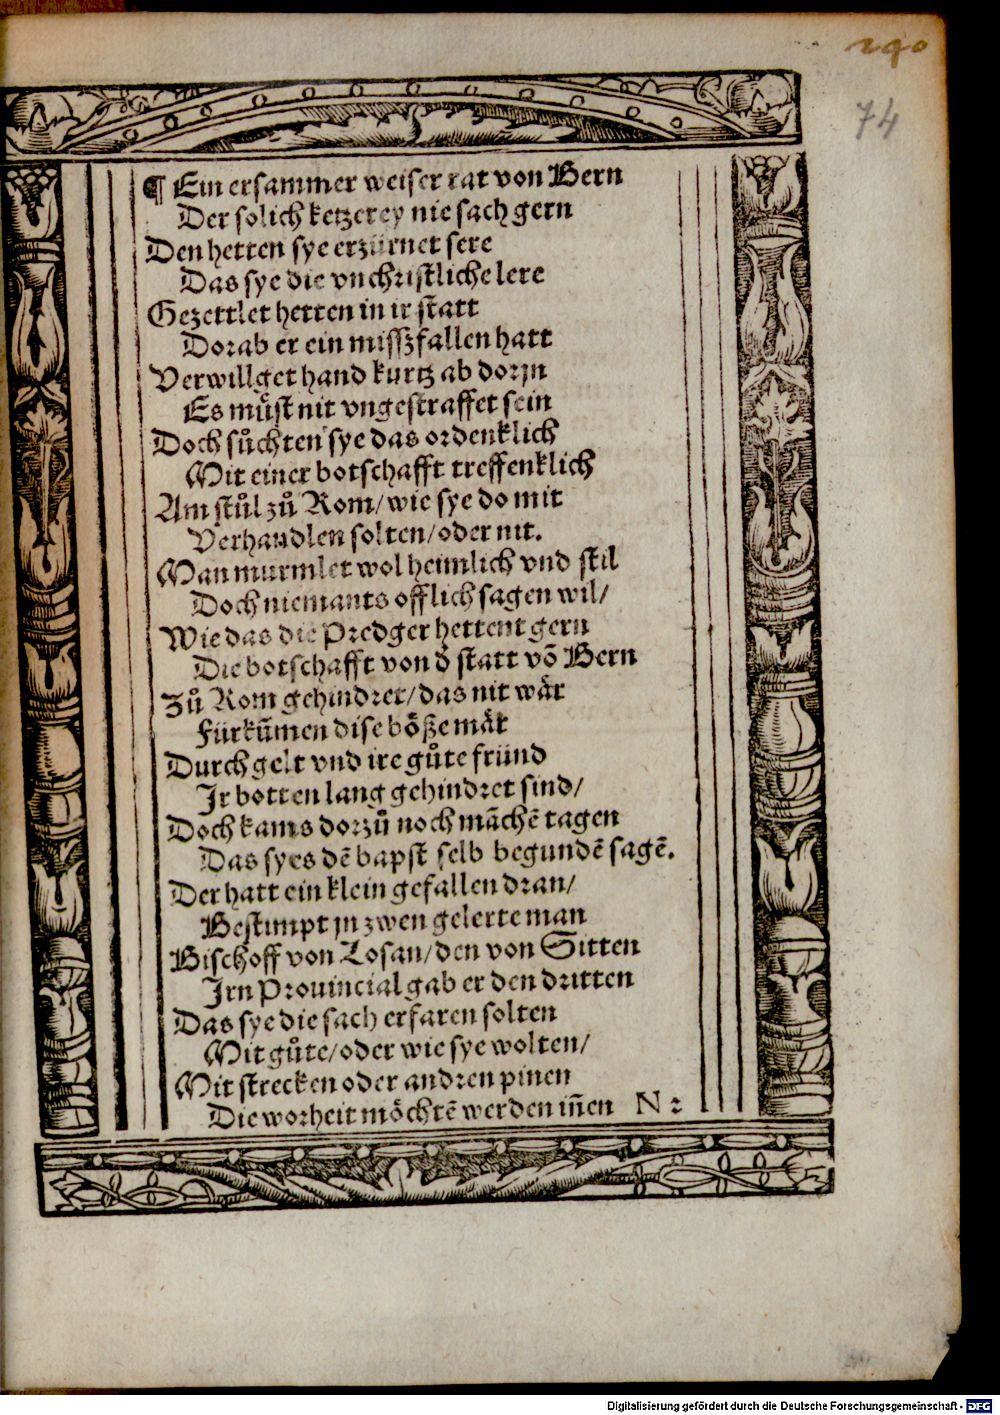 290
74
¶ Ein ersammer weiser rat von Bern
Der solich ketzerey nie sach gern
Den hetten sye erzürnet sere
Das sye die vnchristliche lere
Gezettlet hetten in ir statt
Dorab er ein missʒfallen hatt
Verwillget hand kurtz ab dorjn
Es muͤst nit vngestraffet sein
Doch suͦchten sye das ordenklich
Mit einer botschafft treffenklich
Am stuͦl zuͦ Rom/ wie sye do mit
Verhandlen solten/ oder nit.
Man murmlet wol heimlich vnd stil
Doch niemants offlich sagen wil/
Wie das die Predger hettent gern
Die botschafft von d̄ statt vō Bern
Zuͦ Rom gehindret/ das nit waͤr
Fürkūmen dise boͤße maͤr
Durch gelt vnd ire guͦte fründ
Jr botten lang gehindret sind/
Doch kams dorzuͦ noch māchē tagen
Das syes dē bapst selb begundē sagē.
Der hatt ein klein gefallen dran/
Bestimpt jn zwen gelerte man
Bischoff von Losan/ den von Sitten
Jrn Prouincial gab er den dritten
Das sye die sach erfaren solten
Mit guͦte/ oder wie sye wolten/
Mit strecken oder andren pinen
Die worheit moͤchtē werden iñen N 2
Digitalisierung gefördert durch die Deutsche Forschungsgemeinschaft - DFG